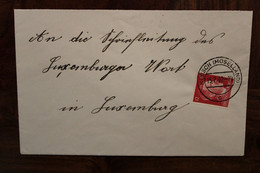 An die Schriftleitung des
Luxemburger Wort
in Luxemburg
(MOSELLAND)